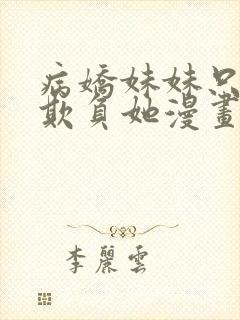 病嬌妹妹只
欺負她漫畫
李麗雲